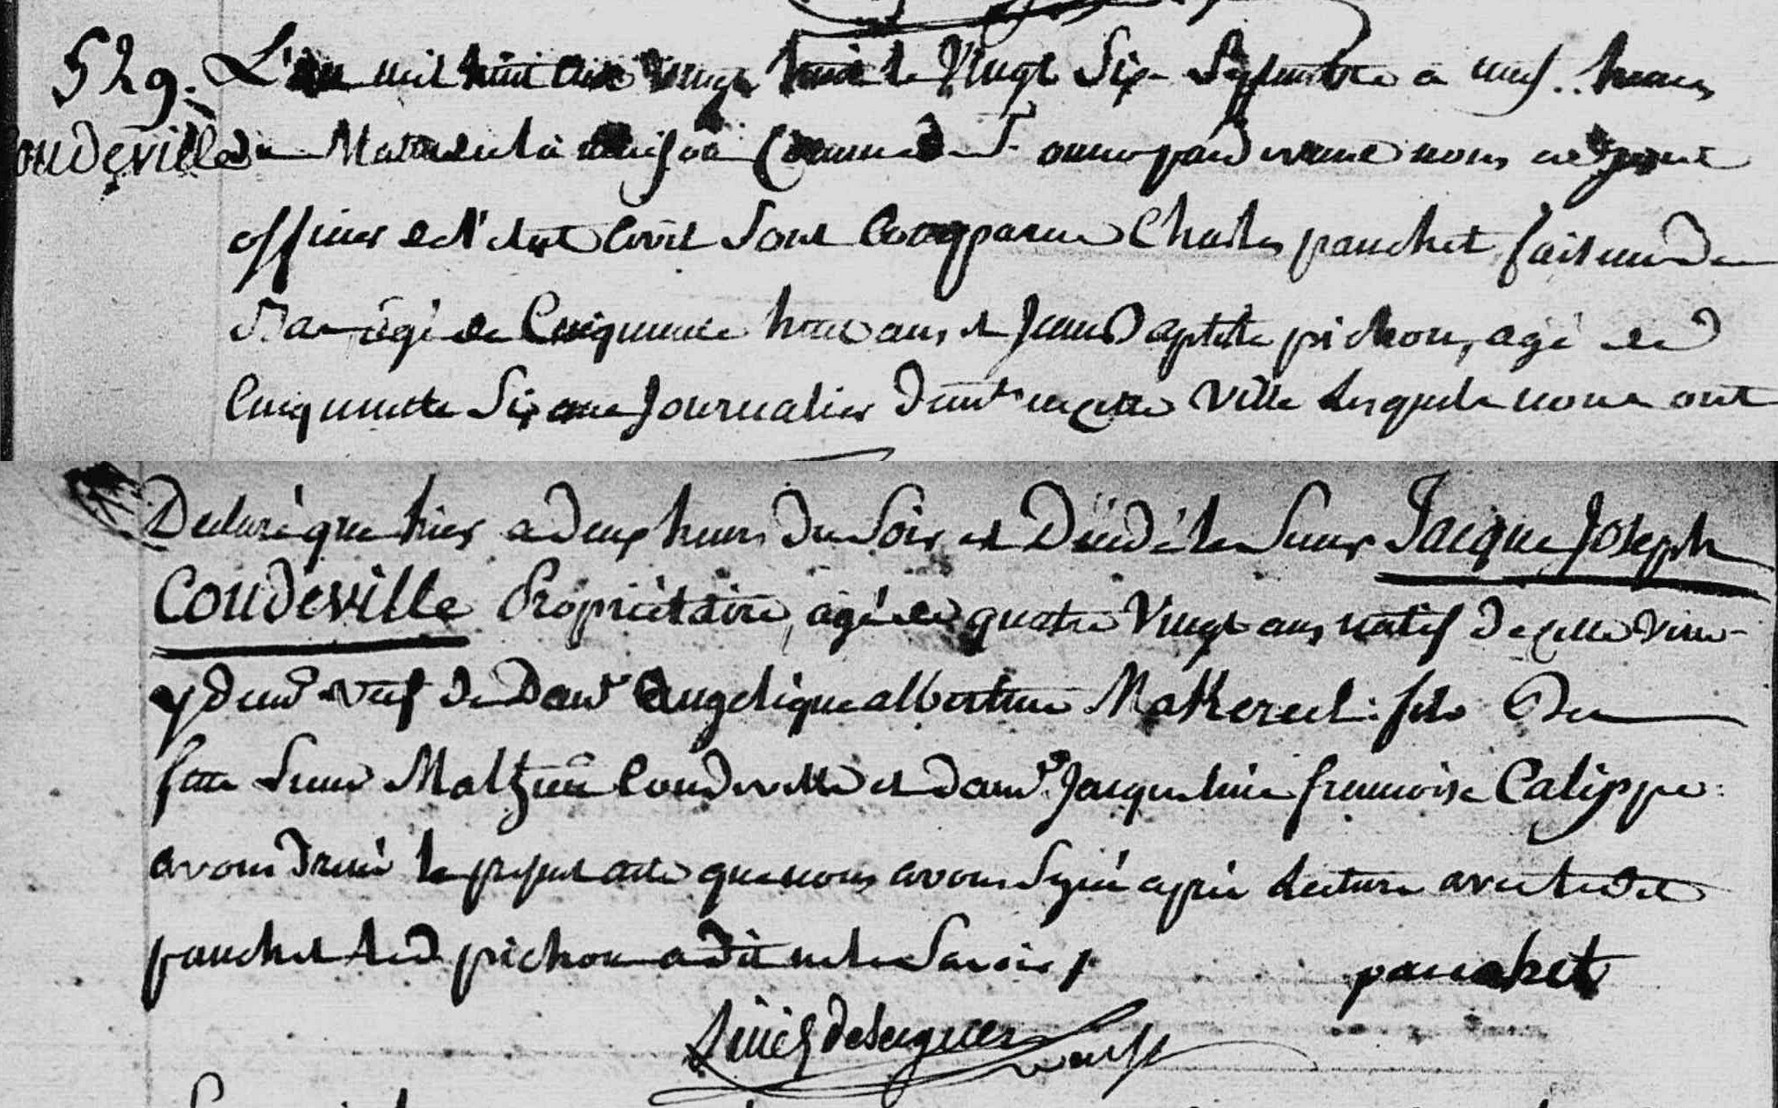 529. L'an mil huit cent vingt huit le vingt Six Septembre a neuf heures
oudeville du Matin en la maison Commune de St omer pardevant nous adjoint
officier de l'etat Civil Sont Comparus Charles pauchet faiseur de
Bas agé de Cinquante huit ans, et Jean Baptiste pichon, agé de
Cinquante Six ans Journalier demt en cette Ville Lesquels nous ont
Declaré que hier a deux heures du Soir est Décédé le Sieur Jacque Joseph
Coudeville Propriétaire, agé de quatre Vingt ans, natif de cette Ville
y demt veuf de Dame Angelique albertine Makereel: fils De
feu Sieur Mathieu Coudeville et dame Jacqueline francoise Calippe:
avons dressé le present acte que nous avons Signé après lecture avec ledit
pauchet led pichon a dit ne le Savoir /
pauchet